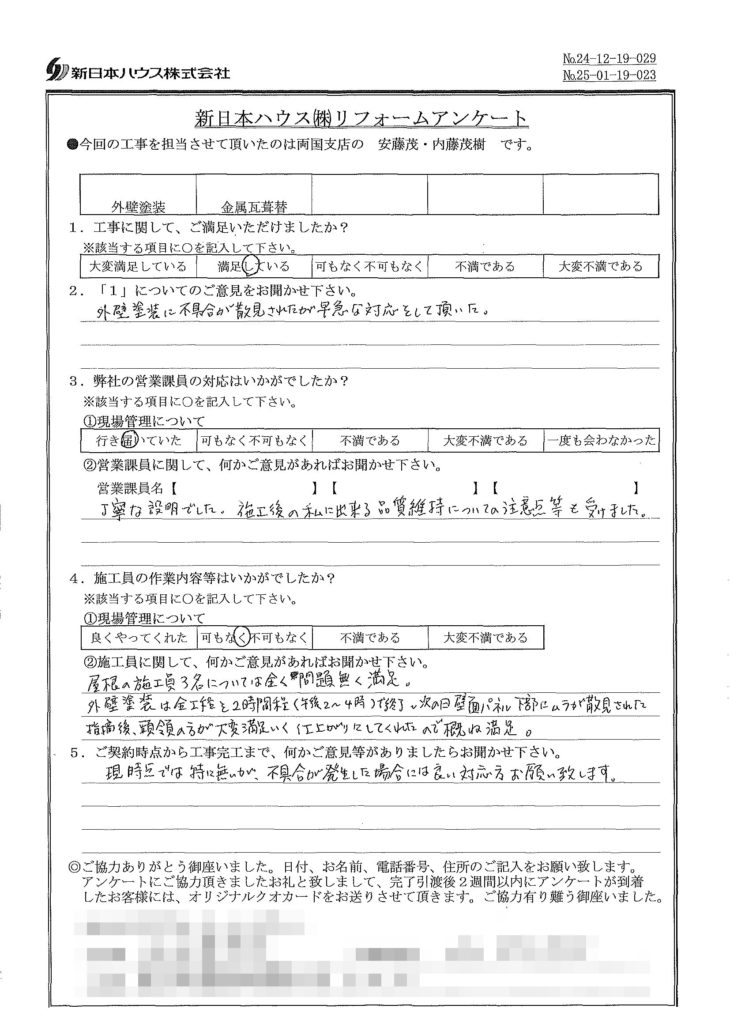 新日本ハウス株式会社
No.24-12-19-029
No.25-01-19-023
新日本ハウス㈱リフォームアンケート
●今回の工事を担当させて頂いたのは両国支店の 安藤茂・内藤茂樹 です。
外壁塗装 金属瓦葺替
1.工事に関して、ご満足いただけましたか?
※該当する項目に○を記入して下さい。
大変満足している 満足している 可もなく不可もなく 不満である 大変不満である
2.「1」についてのご意見をお聞かせ下さい。
外壁塗装に不具合が散見されたが早急な対応をして頂いた。
3.弊社の営業課員の対応はいかがでしたか?
※該当する項目に○を記入して下さい。
①現場管理について
行き届いていた 可もなく不可もなく 不満である 大変不満である 一度も会わなかった
②営業課員に関して、何かご意見があればお聞かせ下さい。
営業課員名【 】【 】【 】
丁寧な説明でした。施工後の私に出来る品質維持についての注意点等も受けました。
4.施工員の作業内容等はいかがでしたか?
※該当する項目に○を記入して下さい。
①現場管理について
良くやってくれた 可もなく不可もなく 不満である 大変不満である
②施工員に関して、何かご意見があればお聞かせ下さい。
屋根の施工員3名については全く問題無く満足。
外壁塗装は全工程を2時間程(午後2〜4時)で終了し次の日壁面パネル下部にムラが散見された
指摘後、頭領の方が大変満足いく仕上がりにしてくれたので概ね満足。
5.ご契約時点から工事完工まで、何かご意見等がありましたらお聞かせ下さい。
現時点では特に無いが、不具合が発生した場合には良い対応方お願い致します。
◎ご協力ありがとう御座いました。日付、お名前、電話番号、住所のご記入をお願い致します。
アンケートにご協力頂きましたお礼と致しまして、完了引渡後2週間以内にアンケートが到着
したお客様には、オリジナルクオカードをお送りさせて頂きます。ご協力有り難う御座いました。